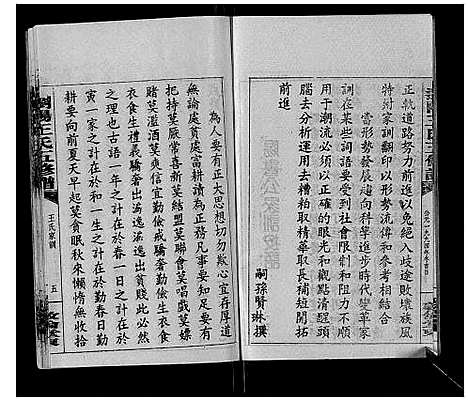 正軌道路努力前進以免絕入歧途敗壞族風
特附家訓翻印以形勢流傳和參考相結合
當形勢發展趨向科學進步時代變革家
訓在某些詞語要受到社會限制和阻力不順
用于潮流必須以正確的眼光和觀點清醒頭
腦去分析運用去糟粕取精華取長補短開拓
前進
嗣孫賢琳撰
為人要有正大思想切勿欺心宜存厚道
無論處貧處富耕讀為正務凡事要知足要有
持莫厭常喜新莫結盟莫聯會莫唱戲莫嫖
賭莫濫酒莫爽信莫戒驕奢勤儉生衣食
衣食生禮儀驕奢出淫逸淫逸出貧賤此必然
之理也古語一年之計在於春一日之計在於
寅一家之計在於和一生之計在於勤春日勤
耕要向前夏天早起莫貪眠秋來懶惰無收拾
瀏陽王氏五修譜
王氏家訓
五